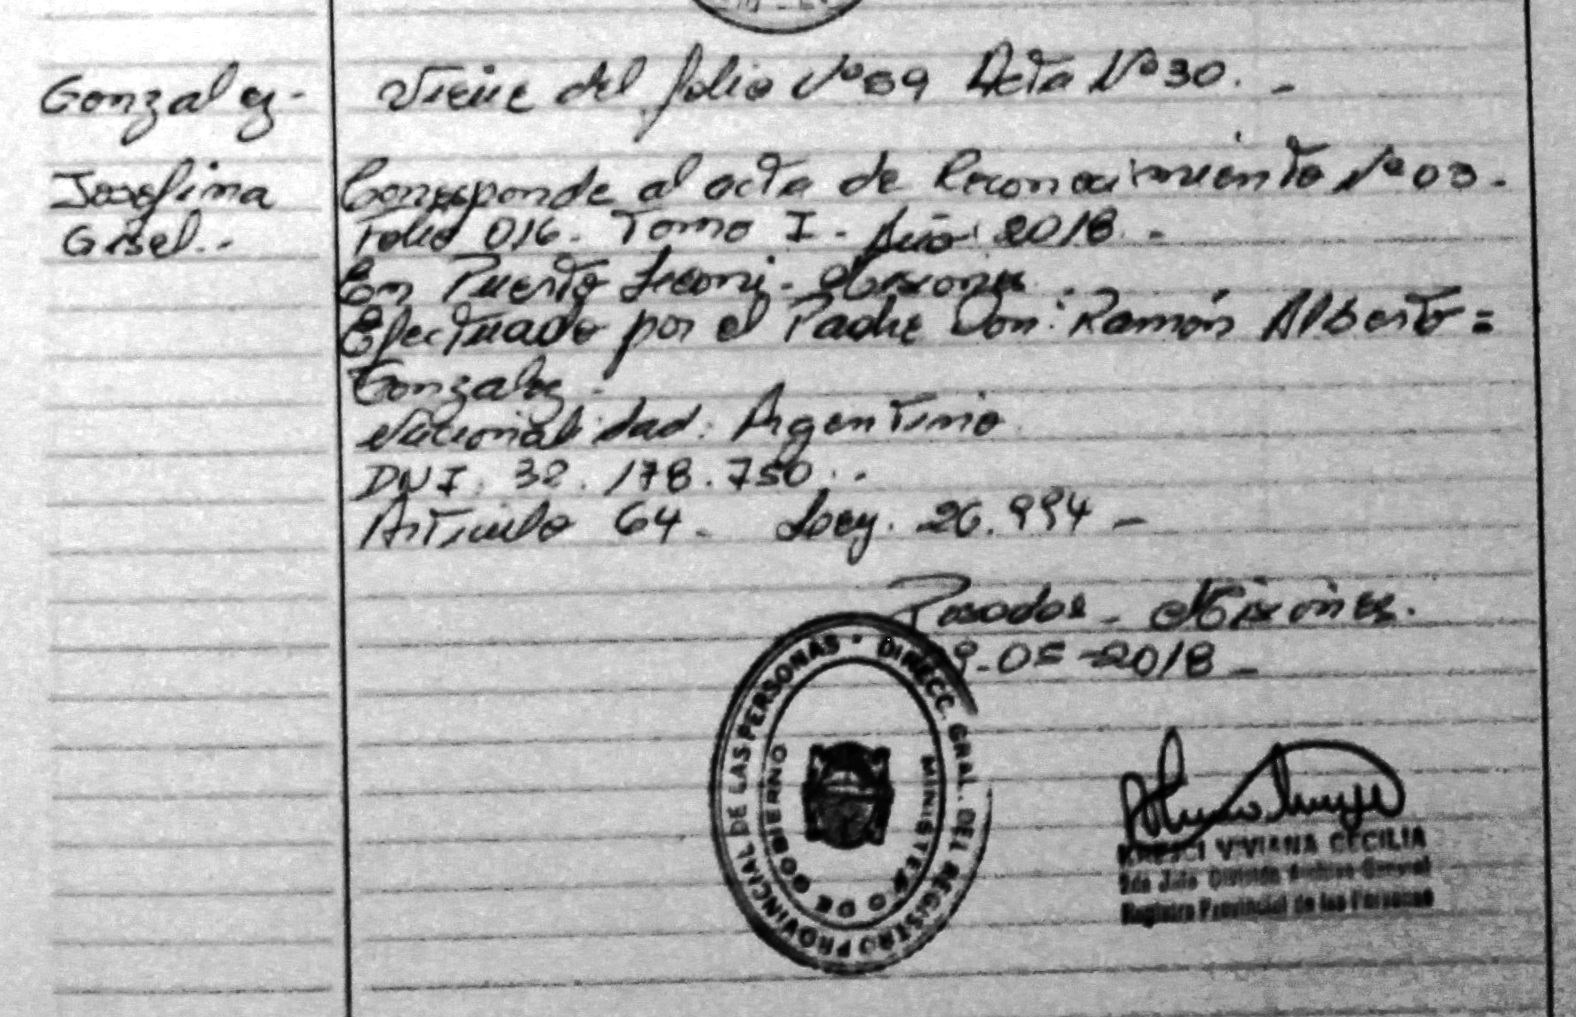 Gonzalez-
Viene del folio Nº 69 Acta Nº 30. -
Josefina
Gisel.-
Corresponde al acta de Reconocimiento Nº 03.
Folio 016. Tomo I - Año 2018. -
En Puerto Leoni - Misiones.
Efectuado por el Padre Don: Ramón Alberto =
Gonzalez.
Nacionalidad: Argentino
DNI. 32.178.750..
Artículo 64. Ley. 26.994 -
Posadas - Misiones.
9-05-2018 -
DIRECC. GRAL. DEL REGISTRO PROVINCIAL DE LAS PERSONAS
MINISTERIO DE GOBIERNO
VIVIANA CECILIA
2da Jefe División Archivo General
Registro Provincial de las Personas